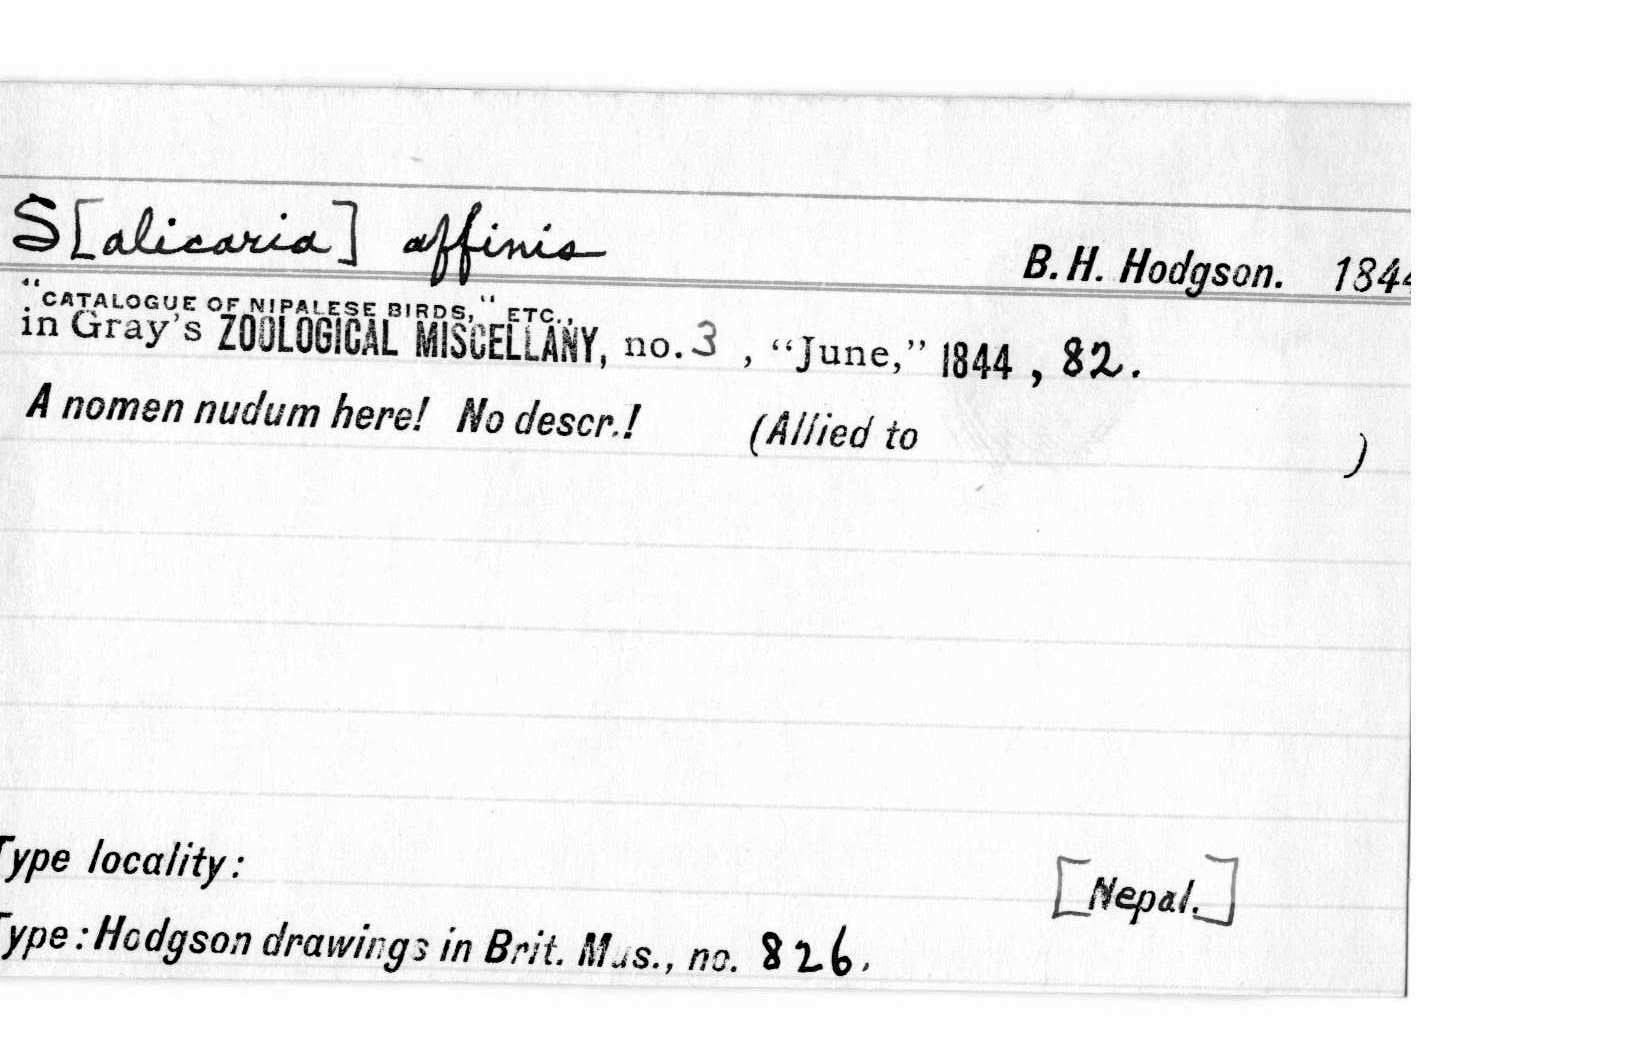 S[alicaria] affinis
B. H. Hodgson. 1844
"CATALOGUE OF NIPALESE BIRDS," ETC.,
in Gray's ZOOLOGICAL MISCELLANY, no. 3 , "June," 1844 , 82.
A nomen nudum here! No descr.! (Allied to )
Type locality: [Nepal.]
Type: Hodgson drawings in Brit. Mus., no. 826.